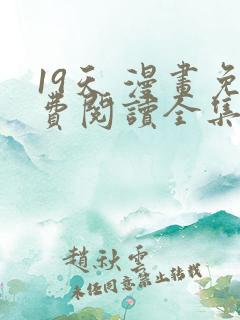 19天 漫畫免
費閱讀全集
趙秋雲
未经同意禁止转载